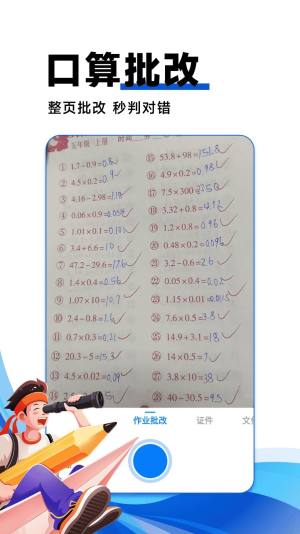 口算批改
整页批改 秒判对错
五年级 上册
① 1.7-0.9=0.8
② 4.5×0.2=0.9
③ 4.16-2.98=1.18
④ 0.06×0.9=0.054
⑤ 1.01×0.1=0.101
⑥ 3.4+6.6=10
⑦ 47.2-29.6=17.6
⑧ 1.4×0.4=0.56
⑨ 1.07×10=10.7
⑩ 2.4-0.8=1.6
⑪ 0.7×0.3=0.21
⑫ 20.3-5=15.3
⑬ 4.5×0.02=0.09
⑭
⑮ 53.8+98=151.8
⑯ 4.9×0.2=0.98
⑰ 7.5×300=2250
⑱ 3.32+0.8=4.12
⑲ 1.2×0.8=0.96
⑳ 0.48×0.2=0.096
㉑ 3.2-0.6=2.6
㉒ 0.05×0.4=0.02
㉓ 1.15×0.01=0.0115
㉔ 7.6×0.5=3.8
㉕ 14.9+3.1=18
㉖ 14×0.5=7
㉗ 3.8×10=38
㉘ 40-30.5=9.5
作业批改
证件